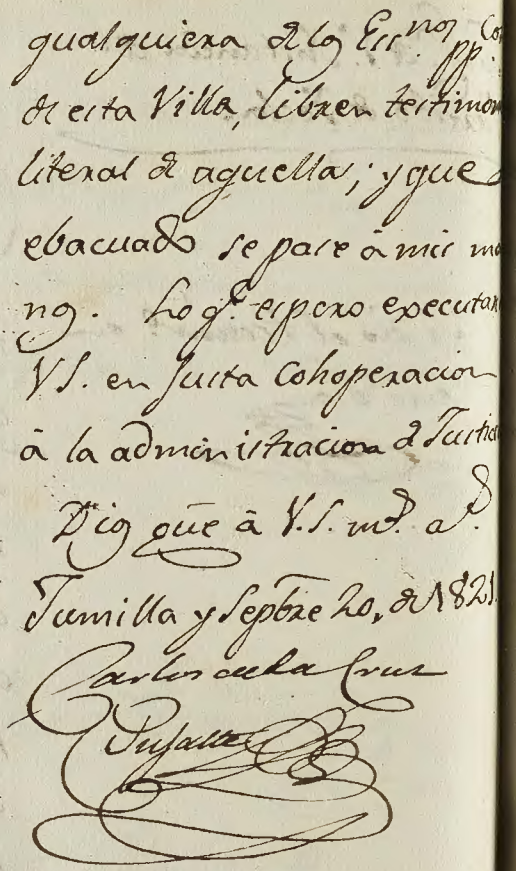 qualquiera de los Ess.nos pp.cos
de esta Villa, libren testimon
literal de aquella; y que
ebacuado se pase â mis ma
nos. Lo q.e espero executar
V.S. en Justa Cohoperacion
â la administracion de Justici
Dios gûe â V.S. m.s a.s
Jumilla y Septbre 20, de 1821.
Carlos de la Cruz
Pujalte